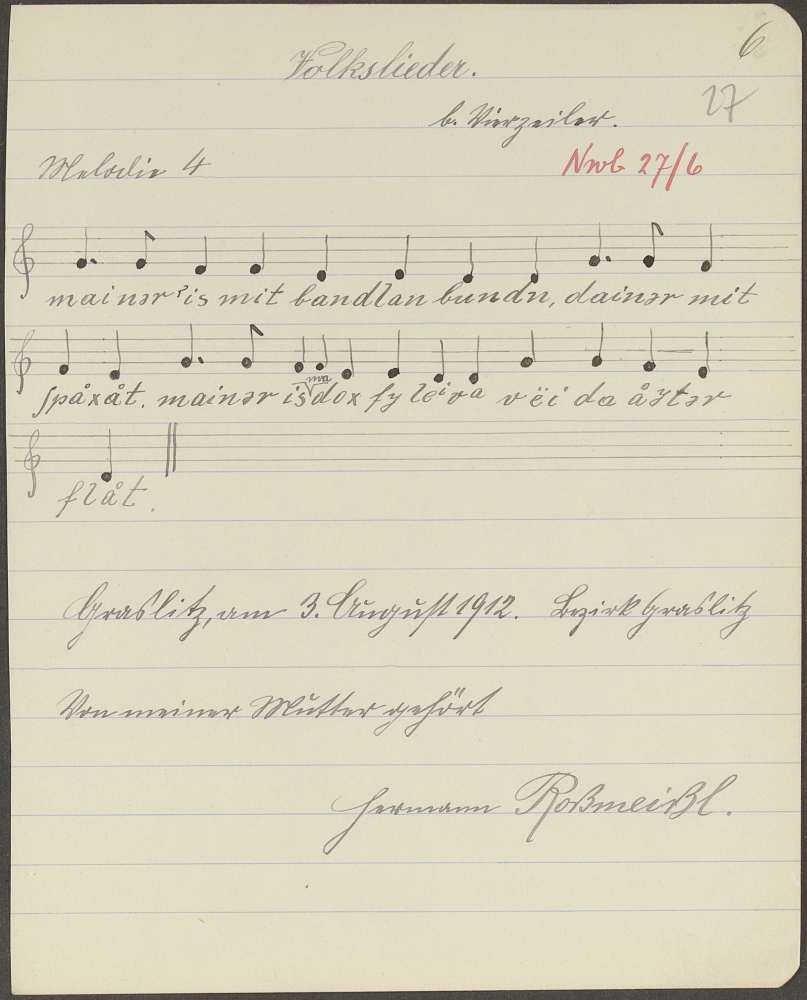 6
Volkslieder.
27
b. Vierzeiler.
Melodie 4
Nwb 27/6
mainər is mit bandlan bundn, dainər mit
ʃpåxåt. mainər is dox fy
flåt.
Graslitz, am 3. August 1912. Bezirk Graslitz
Von meiner Mutter gehört
Hermann Roßmeißl.